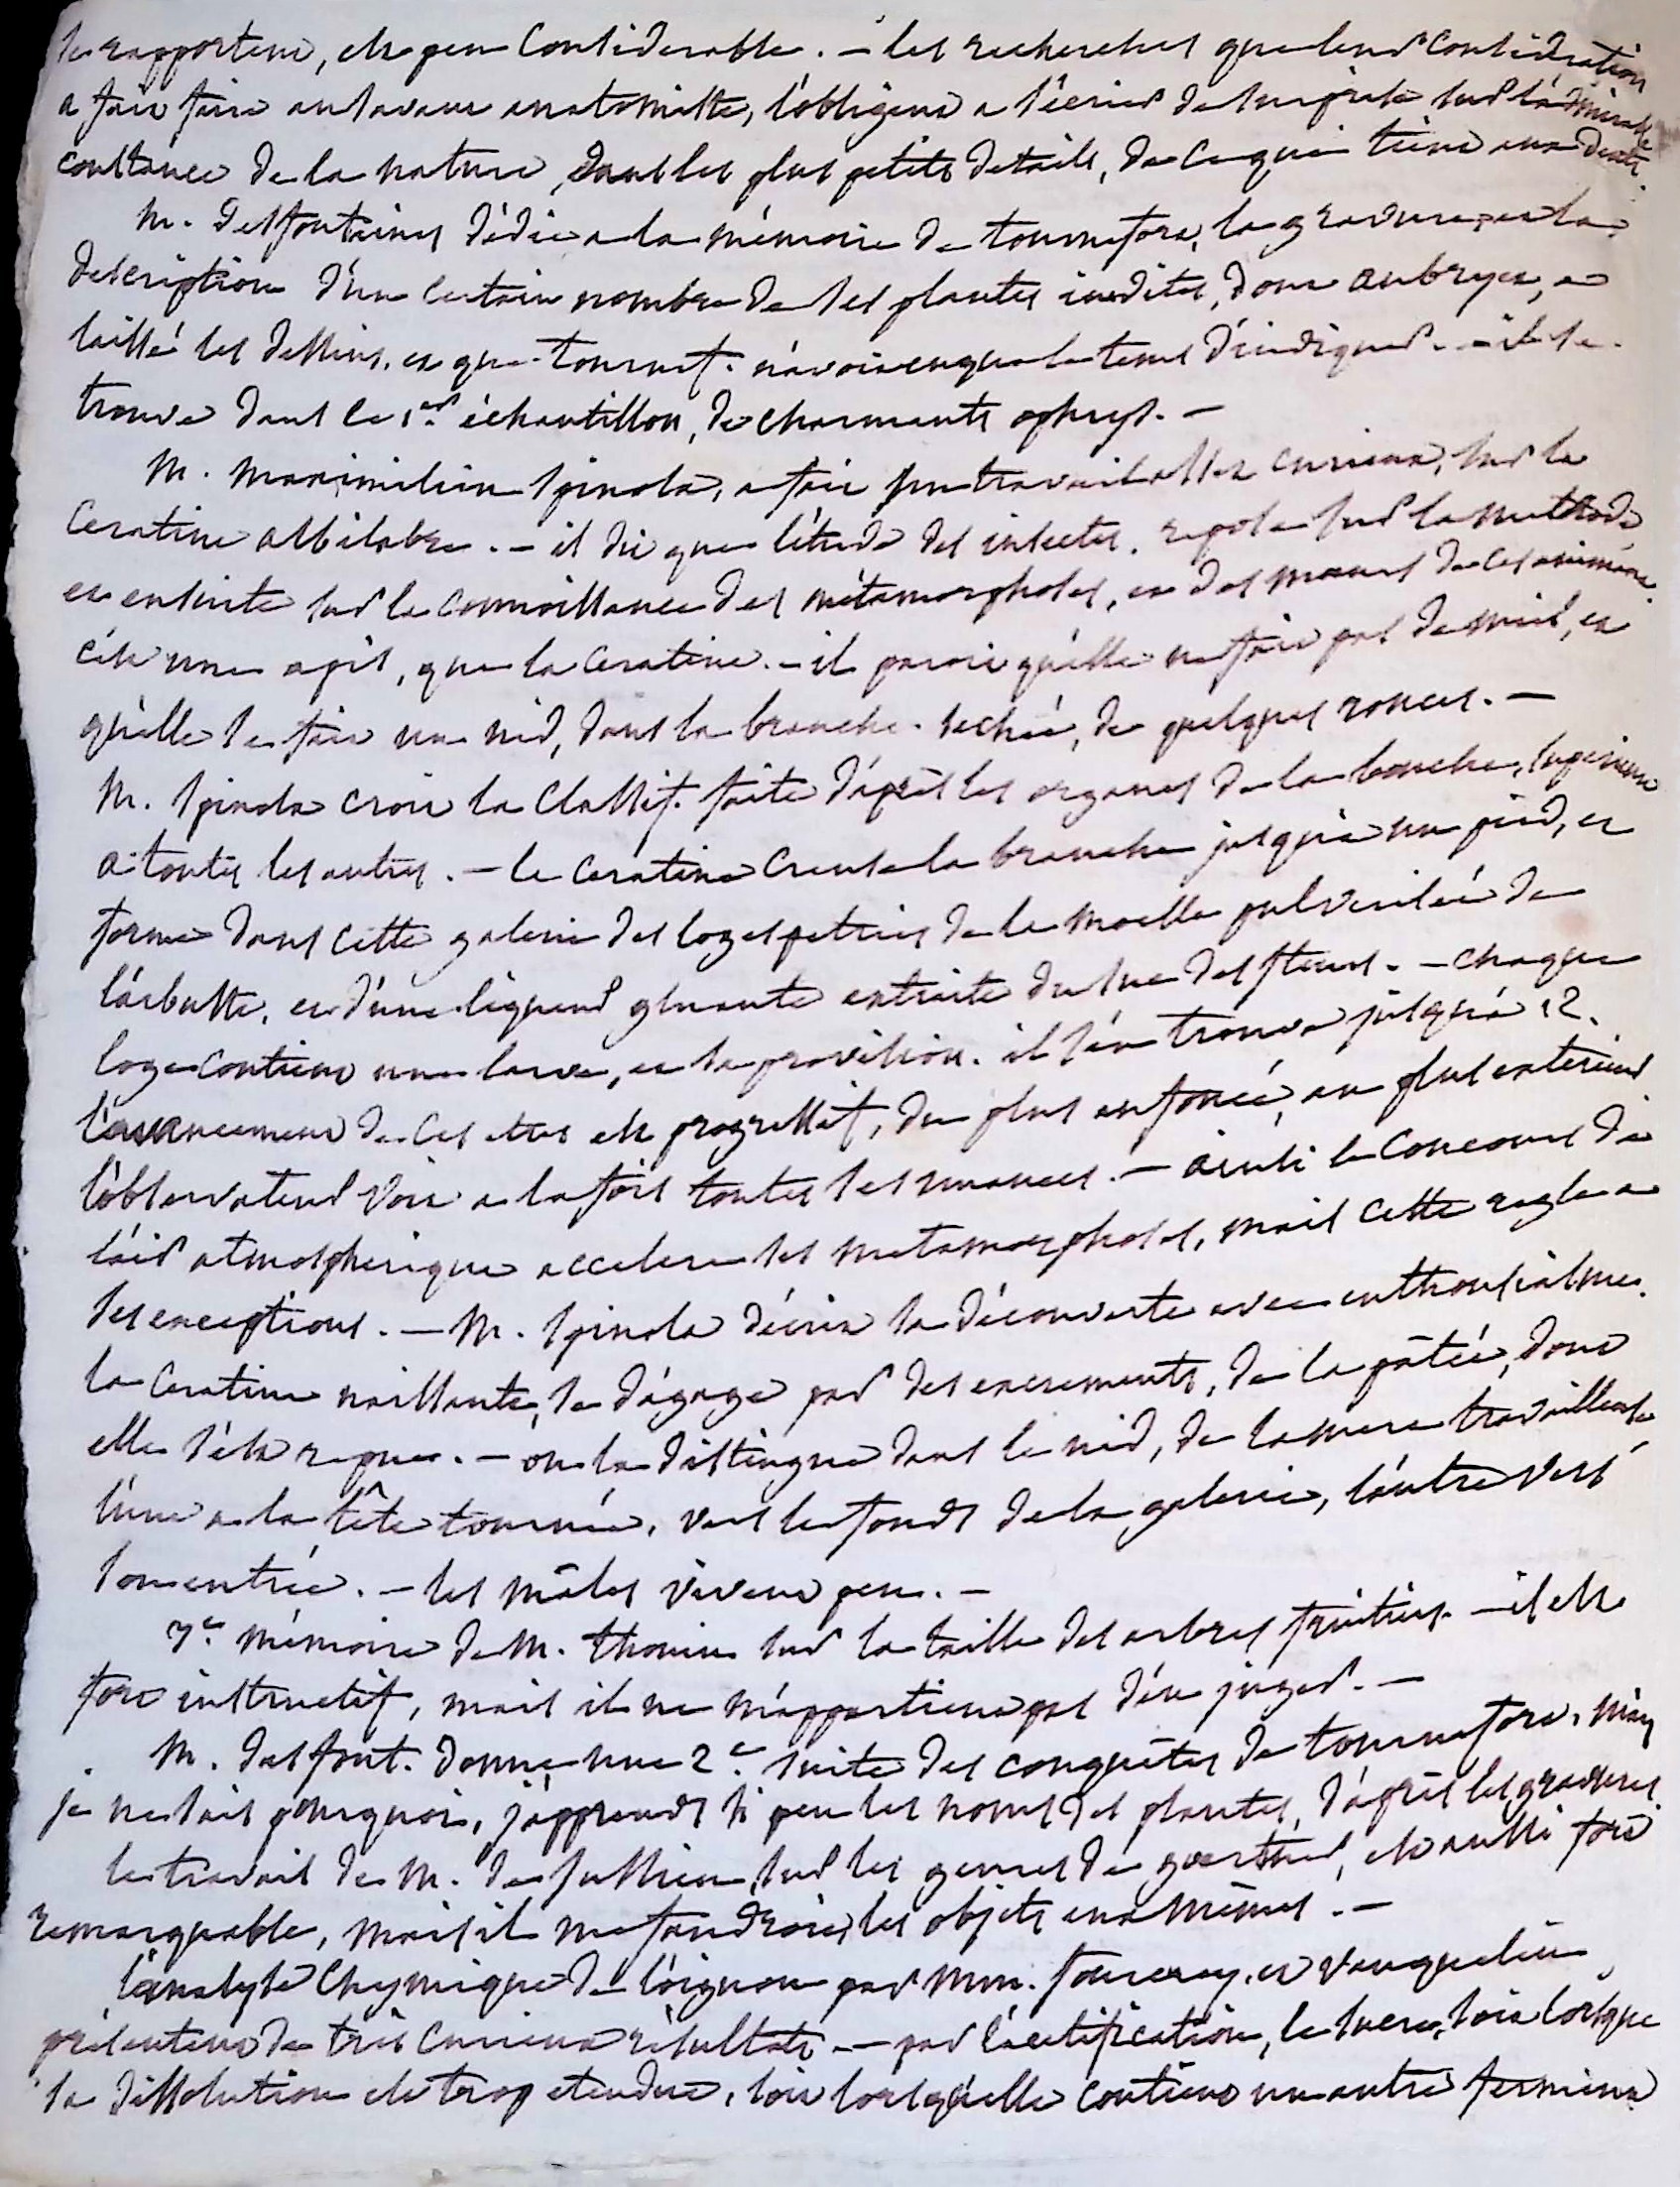 se rapportent, est peu considerable. – les recherches que leur considération
a fait faire au savant anatomiste, l'obligent a s'écrier de surprise sur l'admirable
constance de la nature, dans les plus petits details, de ce qui tient aux dents.
M. Desfontaines dédie a la mémoire de tournefort, la gravure, et la
description d'un certain nombre de ses plantes inedites, dont aubryet, a
laissé les dessins, et que tournef. n'avoit eu que le tems d'indiquer. – il se
trouve dans le 1er échantillon, de charmants ophrys. –
M. maximilien spinola, a fait un travail assez curieux, sur la
Ceratine albilabre. – il dit que l'étude des insectes, repose sur la méthode
et ensuite sur la connoissance des métamorphoses, et des mœurs de ces animaux.
c'est une apis, que la ceratine. – il paroit qu'elle ne fait pas de miel, et
qu'elle se fait un nid, dans la branche sechée, de quelques ronces. –
M. spinola croit la classif. faite d'après les organes de la bouche, superieure
a toutes les autres. – la ceratine creuse la branche jusqu'a un pied, et
forme dans cette galerie des loges petries de la moelle pulverisée de
l'arbuste, et d'une liqueur gluante extraite du suc des fleurs. – chaque
loge contient une larve, et sa provision. il s'en trouve jusqu'à 12.
l'avancement de ces etres est progressif, du plus enfoncé, au plus exterieur
l'observateur voit a la fois toutes les nuances. – ainsi le concours de
l'air atmospherique accelere les metamorphoses, mais cette regle a
ses exceptions. – M. spinola décrit sa découverte avec enthousiasme.
la ceratine naissante, se dégage par des excrements, de la pâtée, dont
elle s'est repue. – on la distingue dans le nid, de la mere travailleuse
l'une a la tête tournée, vers le fonds de la galerie, l'autre vers
son entrée. – les mâles vivent peu. –
7e. mémoire de M. thouin sur la taille des arbres fruitiers. – il est
fort instructif, mais il ne m'appartient pas d'en juger. –
M. desfont. donne une 2e. suite des conquêtes de tournefort, mais
je ne sais pourquoi, j'apprends si peu les noms des plantes, d'après les gravures
le travail de M. de jussieu, sur les genres de gaertner, est aussi fort
remarquable, mais il me faudroit, les objets eux mêmes. –
l'analyse chymique de l'oignon par Mm. fourcroy, et vauquelin
présentent de très curieux résultats. – par l'acetification, le sucre, soit lorsque
sa dissolution est trop etendue, soit lorsqu'elle contient un autre ferment